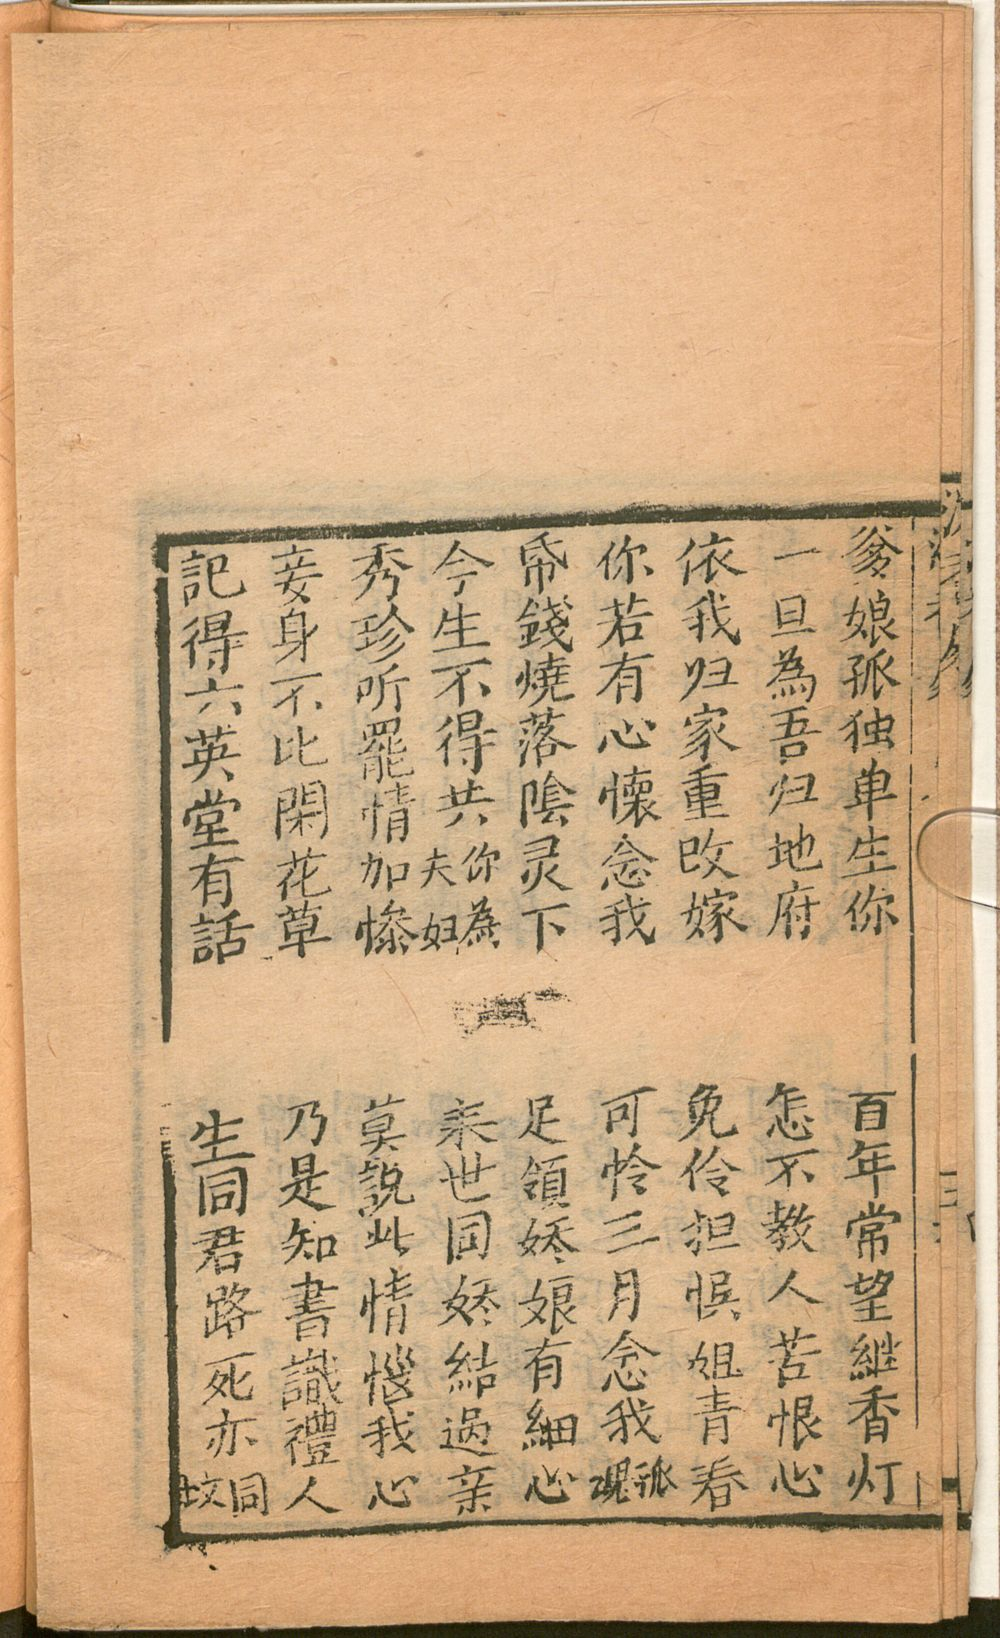 爹娘孤独单生你
百年常望継香灯
一旦為吾归地府
怎不教人苦恨心
依我归家重改嫁
免伶担悮姐青春
你若有心懐念我
可怜三月念我孤魂
帋錢燒落陰灵下
足領娇娘有細心
今生不得共你為夫妇
来世同娇結過亲
秀珍听罷情加慘
莫說此情惱我心
妾身不比閑花草
乃是知書識禮人
記得六英堂有話
生同君路死亦同坟